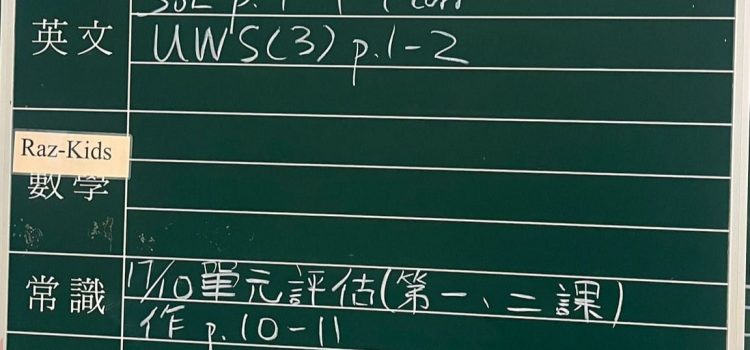 英文
UWS(3) p.1-2
Raz-Kids
數學
常識 17/10單元評估(第一、二課)
作 p.10-11